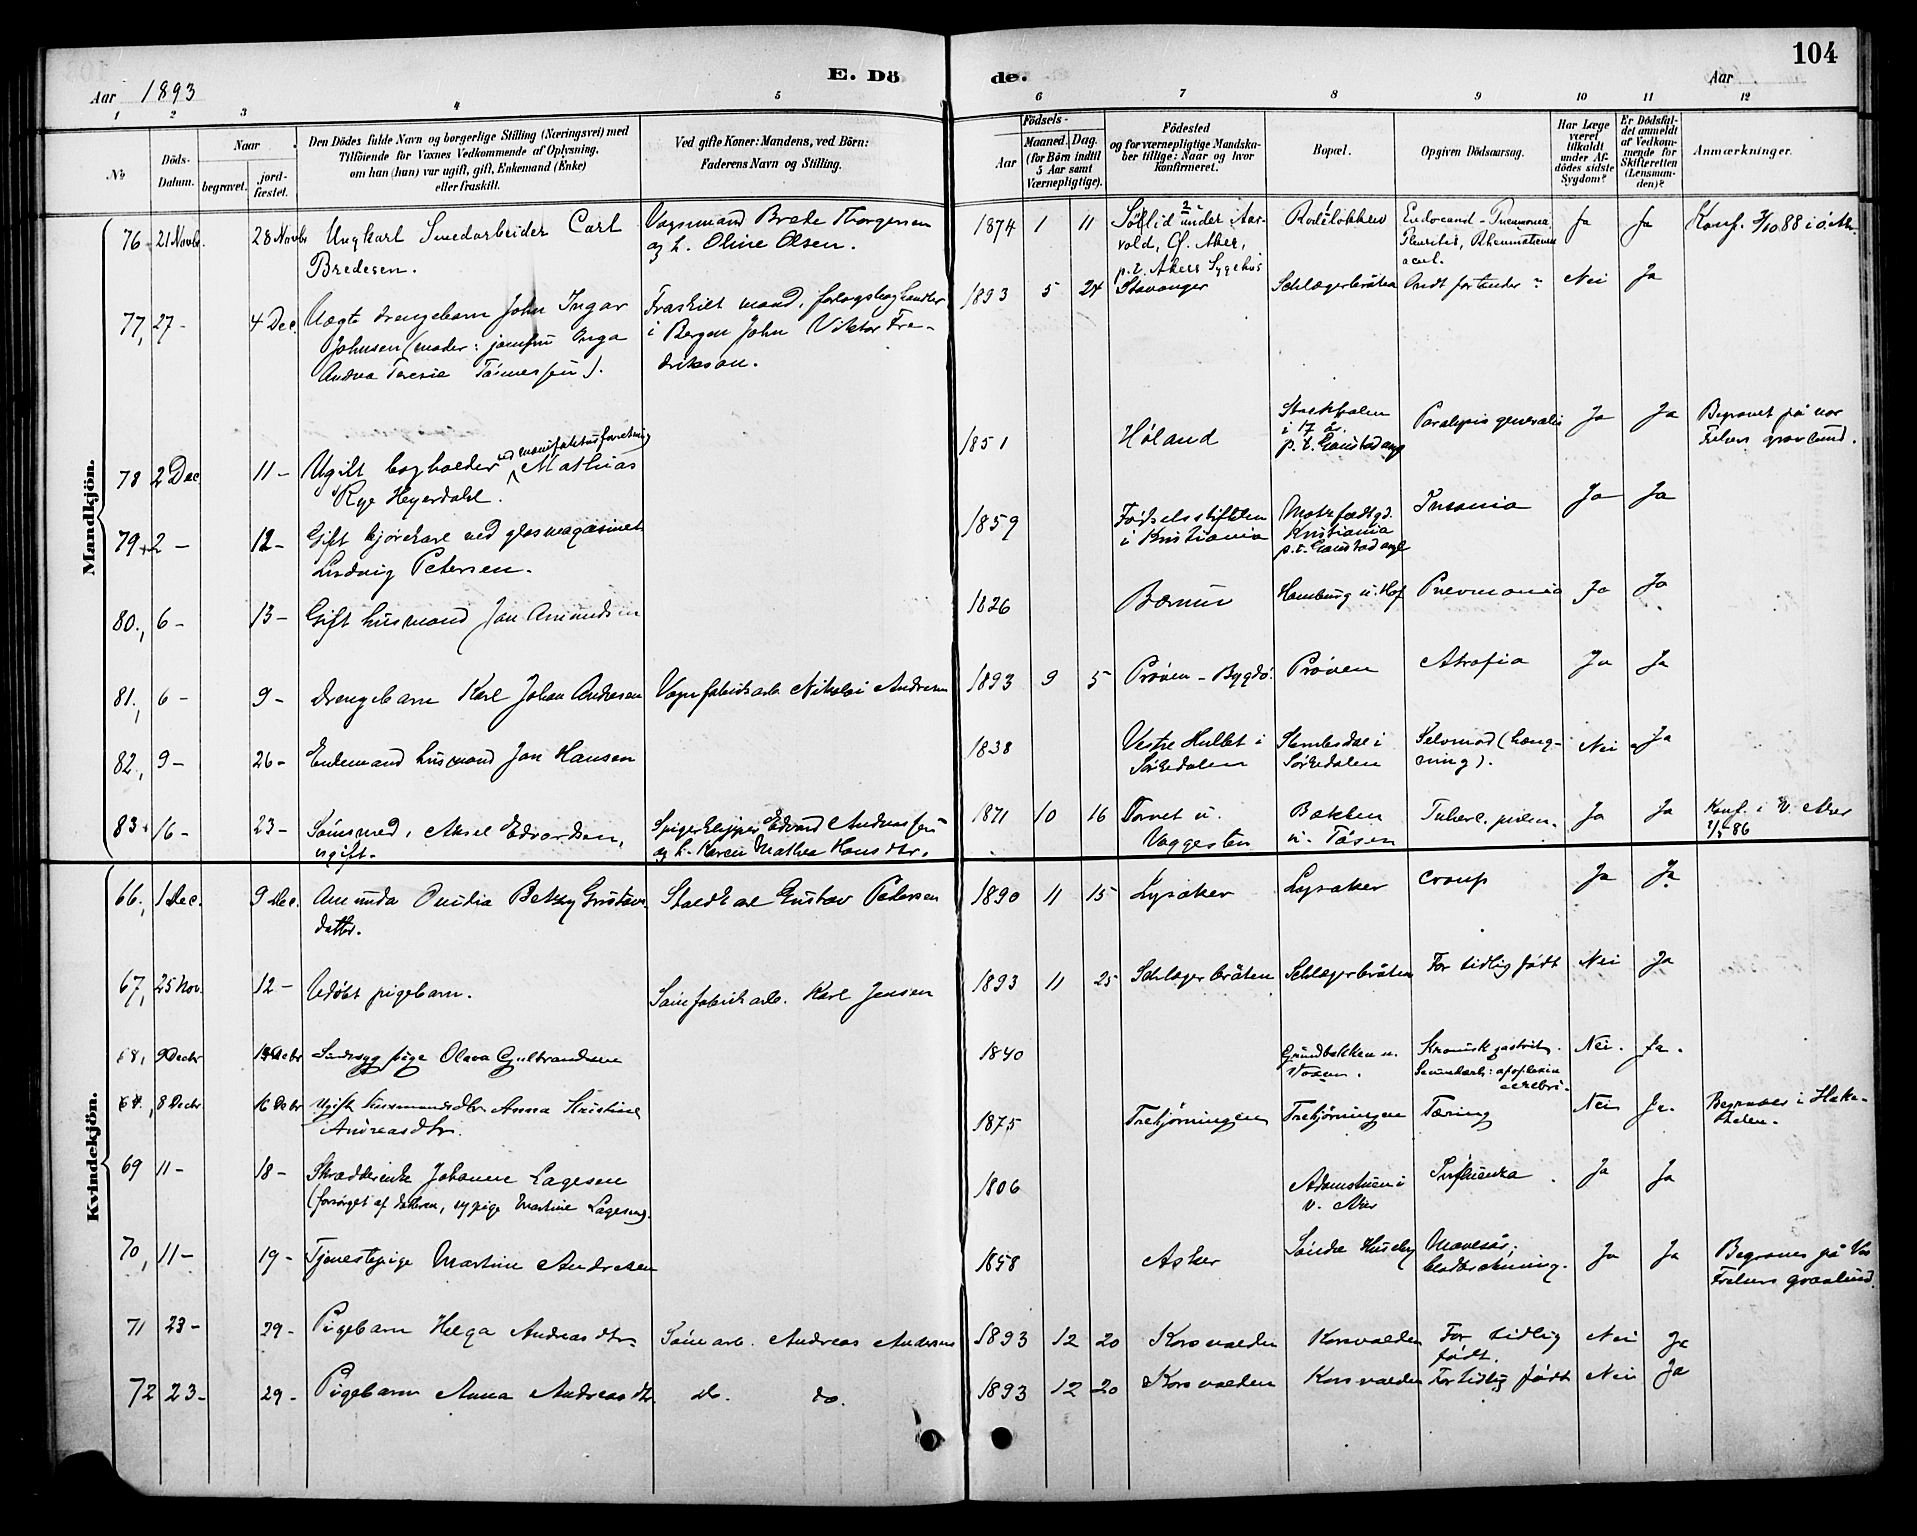 104
E. Döde.
Aar 1893
Aar
1 2 3 4 5 6 7 8 9 10 11 12
No
Döds-Datum.
Naar
begravet.
jordfæstet.
Den Dödes fulde Navn og borgerlige Stilling (Næringsvei) med
Tilföiende for Voxnes Vedkommende af Oplysning,
om han (hun) var ugift, gift, Enkemand (Enke)
eller fraskilt.
Ved gifte Koner: Mandens, ved Börn:
Faderens Navn og Stilling.
Födsels-
Aar
Maaned. Dag.
(for Börn indtil
5 Aar samt
Værnepligtige).
Födested
og for værnepligtige Mandska-
ber tillige: Naar og hvor
konfirmeret.
Bopæl.
Opgiven Dödsaarsag.
Har Læge
været
tilkaldt
under Af-
dödes sidste
Sygdom?
Er Dödsfal-
det anmeldt
af Vedkom-
mende for
Skifteretten
(Lensman-
den)?
Anmærkninger.
Mandkjön.
76. 21 Novbr. 28 Novbr Ungkarl Smedarbeider Carl Vognmand Brede Thorgersen 1874 1 11 under Aar- Rodeløkken Endocard - Pneumonia Ja Ja Konf. 2/10 88 i ö. Ak.
Bredesen. og h. Oline Olsen. vold, Ø. Aker, Pleuritis, Rheumatismus
p.t. Akers Sygehus acut.
77, 27 - 4 Dec. Uægte drengebarn John Ingar Fraskilt mand, forlagsboghandler 1893 5 24 Stavanger Schlægerbråten Ondt for tænder Nei Ja
Johnsen (moder: jomfru Inga i Bergen John Viktor Fre-
Andrea Teresie ). drikson.
78 2 Dec 11 - Ugift bogholder ved manufakturforretning Mathias 1851 Høland Stockholm Paralysis generalis Ja Ja Begravet på vor
Rye Heyerdahl. i 17 år p.t. Gaustad asyl Frelsers gravlund.
79, 2 - 12 - Gift kjørekarl ved glasmagasinet 1859 Fødselsstiftelsen Kristiania Insania Ja Ja
Ludvig Petersen. i Kristiania p.t. Gaustad asyl
80, 6 - 13 - Gift husmand Jan Amundsen 1826 Bærum Homburg u. Hof Pnevmonia Ja Ja
81, 6 - 9 - Drengebarn Karl Johan Andresen Vognfabrikarb. Nikolai Andresen 1893 9 5 Prøven - Bygdø. Prøven Atrofia Ja Ja
82, 9 - 26 - Enkemand husmand Jan Hansen 1838 Vestre Hullet i Sørkedalen i Selvmord (hæng- Nei Ja
Sørkedalen Sørkedalen ning).
83. 16 - 23 - Sømsmed, Aksel Edvardsen, Spigerklipper Edvard Andreassen 1871 10 16 Torvet u. Bakken Tuberk. pulm. Ja Ja Konf. i V. Aker
ugift. og h. Karen Mathea Hansdtr. Vaggesten u. Tåsen 1/5 86
Kvindekjön.
66, 1 Dec. 9 Dec. Amunda Betzy Gustavs- Staldkarl Gustav Petersen 1890 11 15 Lysaker Lysaker croup Ja Ja
datter.
67, 25 Nov. 12 - Udøbt pigebarn. Sømfabrikarb. Karl Jensen 1893 11 25 Schlægerbråten Schlægerbråten For tidlig født Nei Ja
68, 9 Decbr Decbr Sindssyg pige Olava Gulbrandsen 1840 Grundbakken u. Kronisk gastrit. Nei. Ja.
Voxen. apoplexia
cerebri.
8 Decbr 16 Decbr Ugift husmandsdtr Anna Kristine 1875 Trehjørningen Trehjørningen Tæring Nei Ja. Begraves i Haka-
Andreasdtr. dalen.
69 11 - 18 - Skrædderenke Johanne Lagesen 1806 Adamstuen i Influenza. Ja Ja
(forsørget af datteren, sypige Martine Lagesen). v. Aker
70, 11 - 19 - Tjenestepige Martine Andresen 1858 Asker Søndre Huseby Mavesår, Ja Ja Begraves på Vor
blodbrækning. Frelsers gravlund.
71 23 - 29 - Pigebarn Helga Andreasdtr. Sømarb. Andreas Andersen 1893 12 20 Korsvolden Korsvolden For tidlig Nei Ja
født.
72 23 - 29 - Pigebarn Anna Andreasdtr. do. do. 1893 12 20 Korsvolden Korsvolden For tidlig født Nei Ja